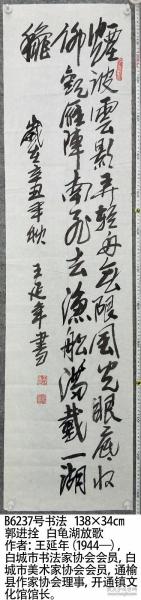 烟波云影弄轻舟无限风光眼底收
仰观雁阵南飞去渔舱满载一湖
秋
岁在辛丑年秋 王延年书
B6237号书法 138×34cm
郭进拴 白龟湖放歌
作者：王延年(1944—)，
白城市书法家协会会员，白
城市美术家协会会员，通榆
县作家协会理事，开通镇文
化馆馆长。